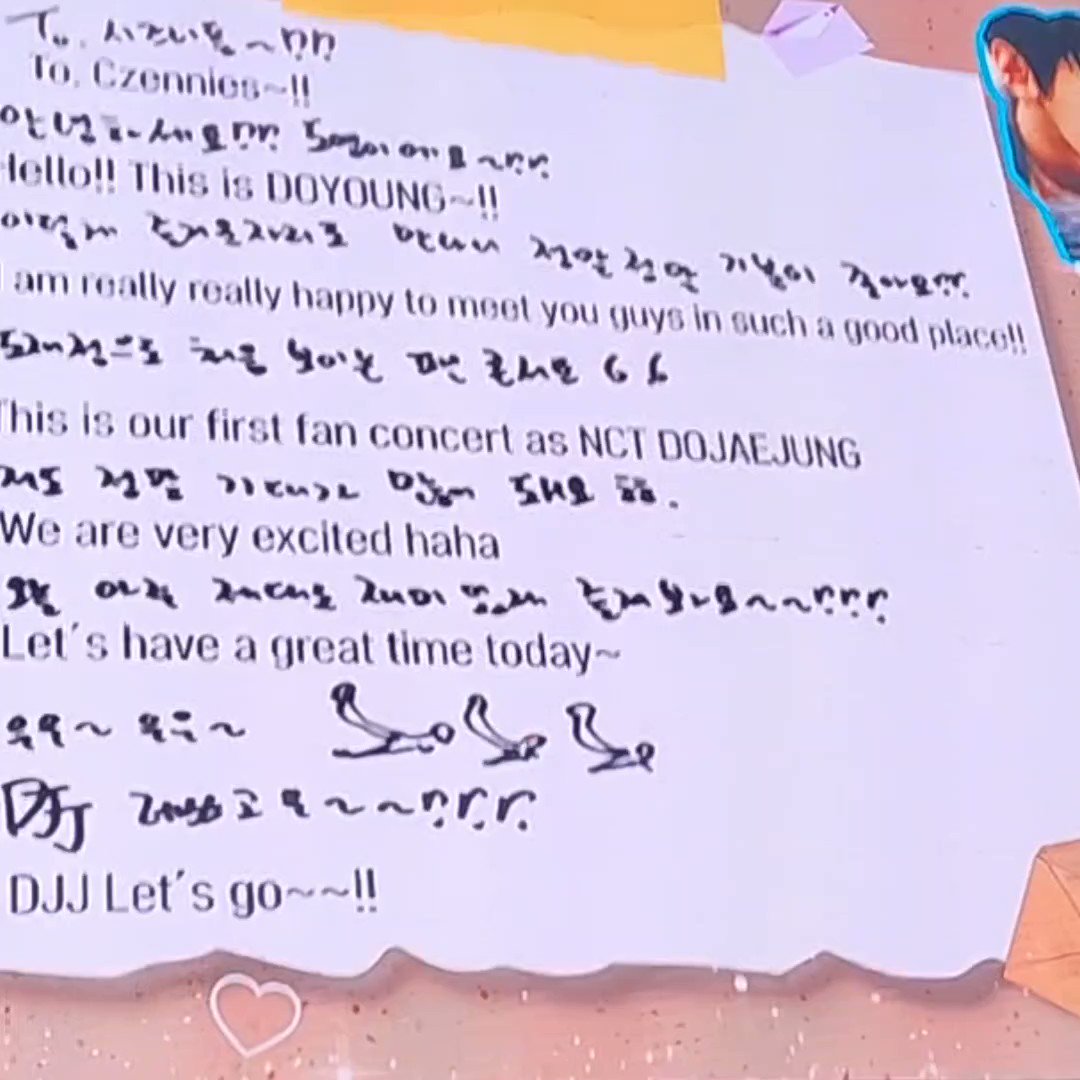 To. 시즈니들~!!
To. Czennies~!!
안녕하세요!! 도영이에요~!!
Hello!! This is DOYOUNG~!!
이렇게 좋은 자리로 만나니 정말 정말 기분이 좋아요!!
I am really really happy to meet you guys in such a good place!!
도재정으로 처음 보이는 팬 콘서트
This is our first fan concert as NCT DOJAEJUNG
저도 정말 기대가 많이 돼요 ㅎㅎ.
We are very excited haha
오늘 아주 제대로 재미있게 놀아봐요~~!!!
Let's have a great time today~
DJJ 레츠고~~!!!
DJJ Let's go~~!!